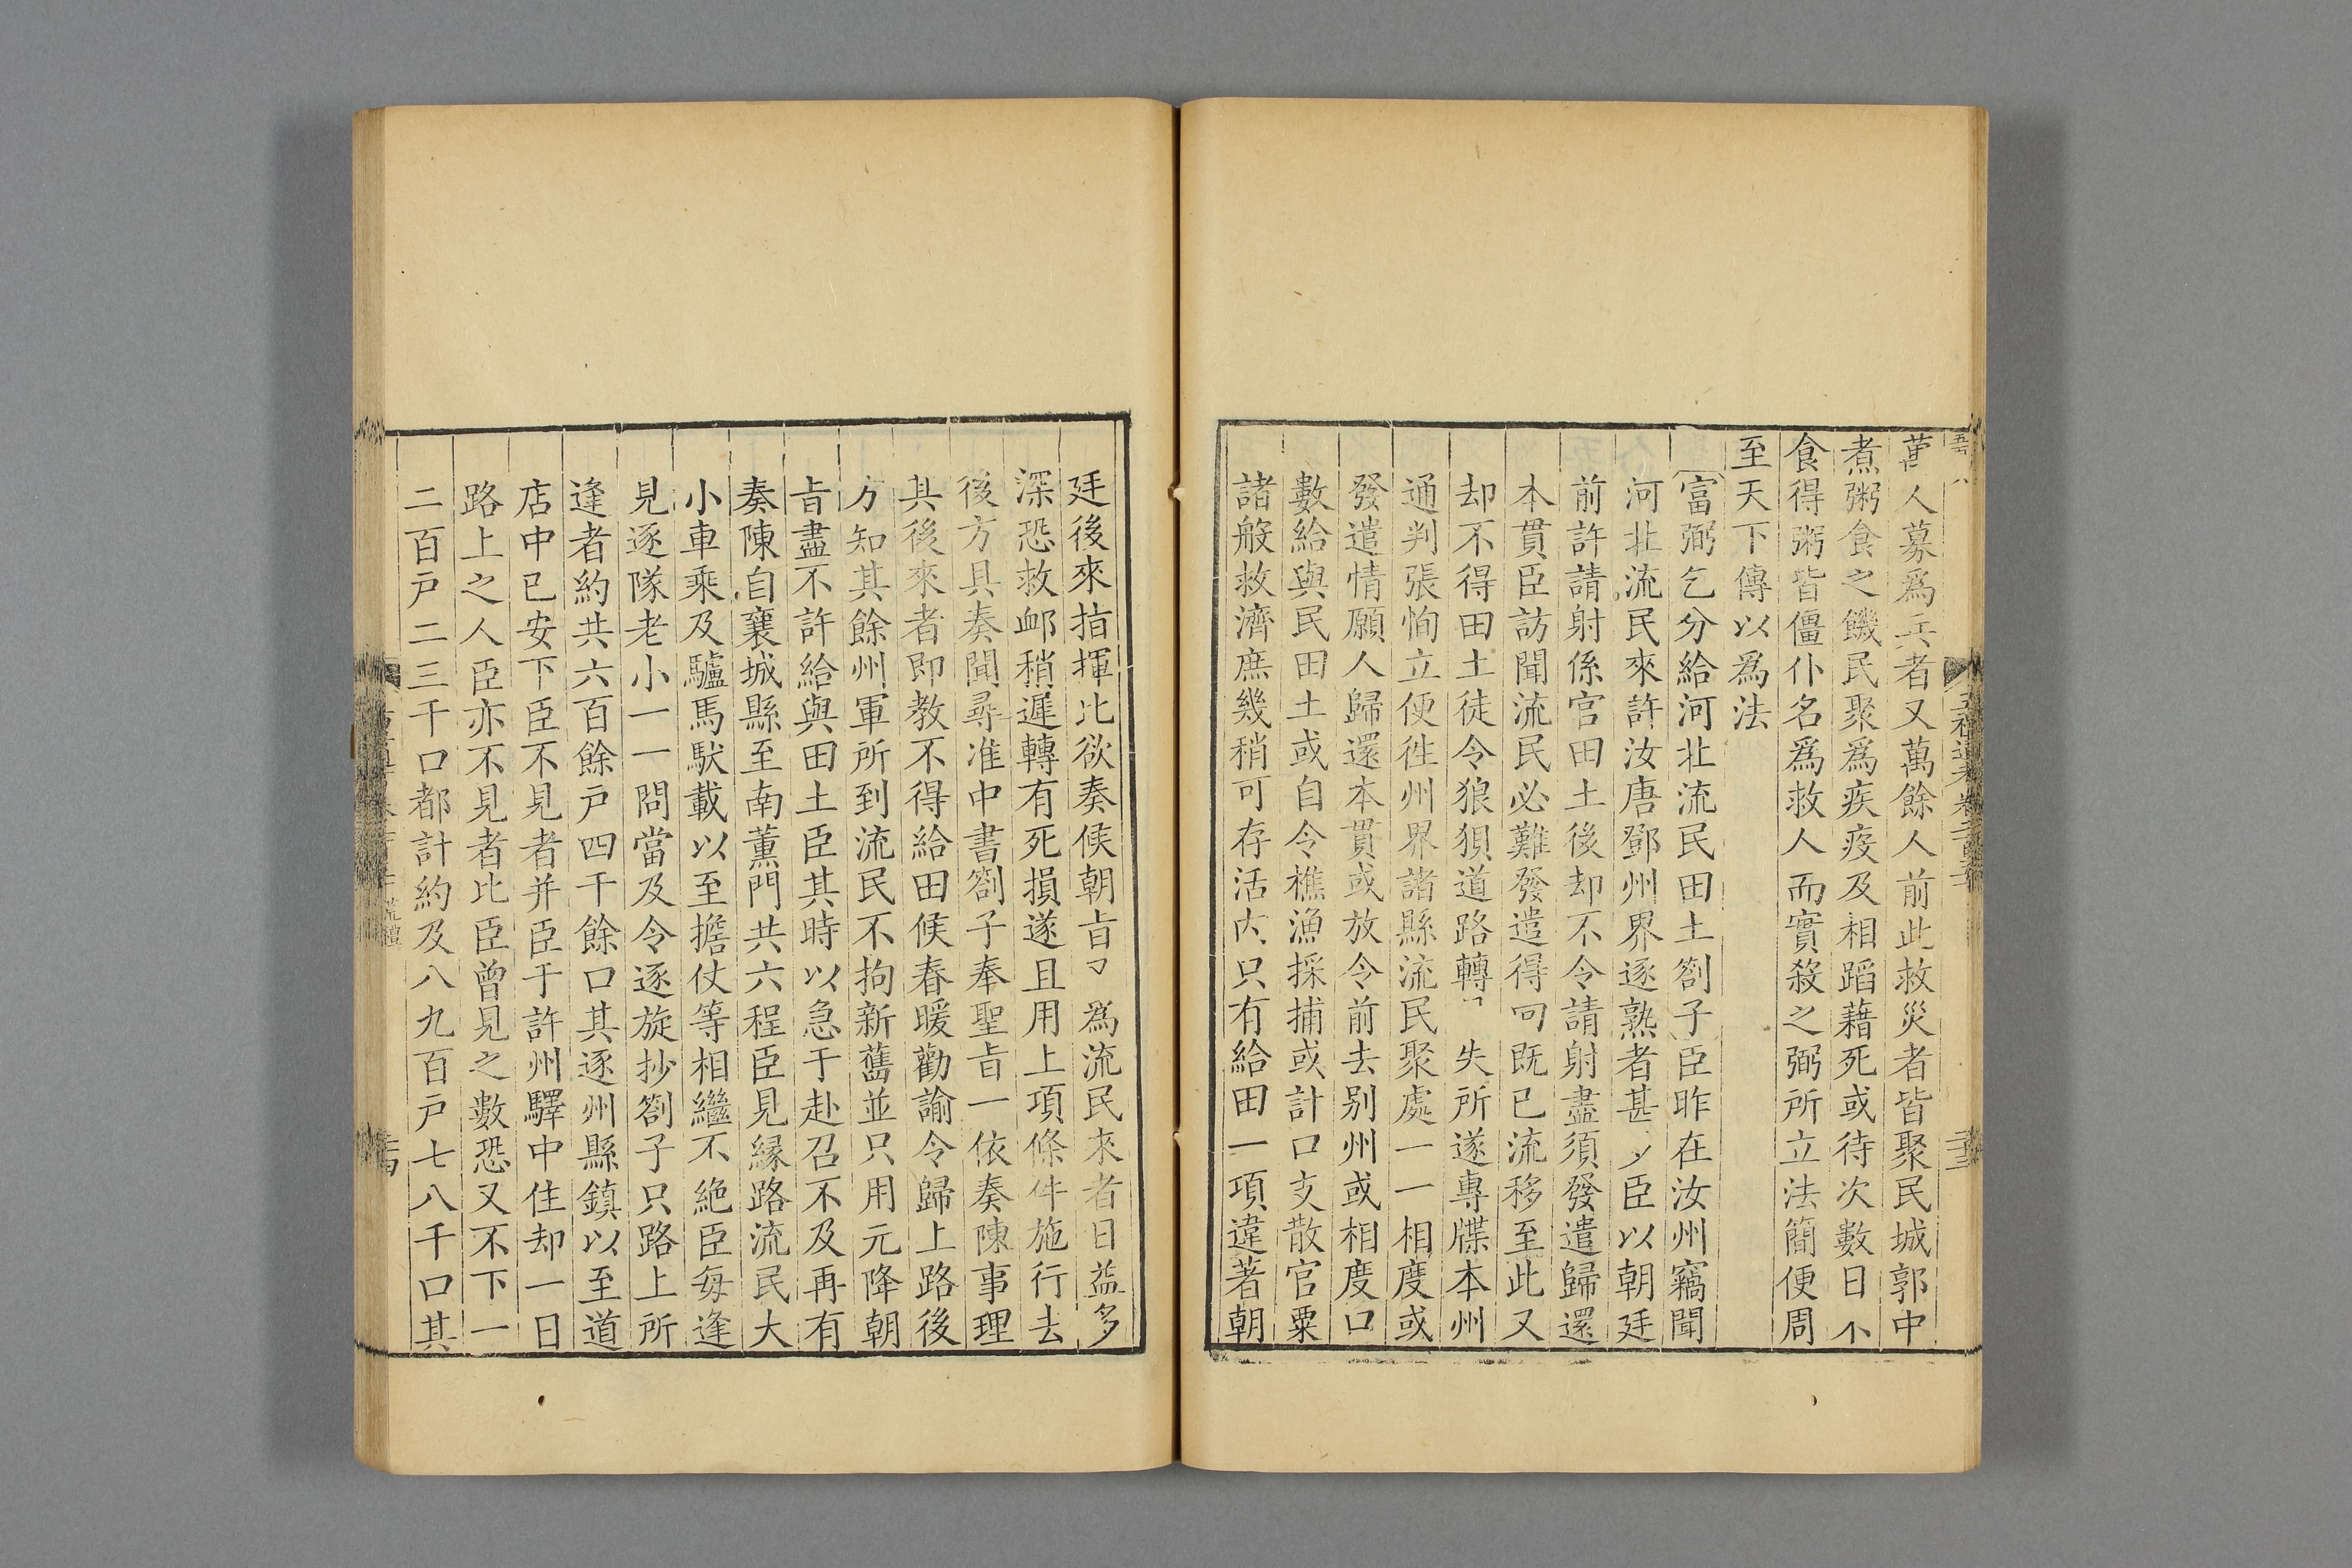 萬人募爲兵者又萬餘人前此救災者皆聚民城郭中
煮粥食之饑民聚爲疾疫及相蹈藉死或待次數日不
食得粥皆僵仆名爲救人而實殺之弼所立法簡便周
至天下傳以爲法
富弼乞分給河北流民田土劄子臣昨在汝州竊聞
河北流民來許汝唐鄧州界逐熟者甚多臣以朝廷
前許請射係官田土後却不令請射盡須發遣歸還
本貫臣訪聞流民必難發遣得回既已流移至此又
却不得田土徒令狼狽道路轉失所遂專牒本州
通判張恂立便徃州界諸縣流民聚處一一相度或
發遣情願人歸還本貫或放令前去别州或相度口
數給與民田土或自令樵漁採捕或計口支散官粟
諸般救濟庶幾稍可存活内只有給田一項違著朝
廷後來指揮比欲奏候朝㫖爲流民來者日益多
深恐救衈稍遲轉有死損遂且用上項條件施行去
後方具奏聞尋准中書劄子奉聖㫖一依奏陳事理
其後來者即教不得給田候春暖勸諭令歸上路後
方知其餘州軍所到流民不拘新舊並只用元降朝
㫖盡不許給與田土臣其時以急于赴召不及再有
奏陳自襄城縣至南薰門共六程臣見縁路流民大
小車乘及驢馬馱載以至擔仗等相繼不絶臣每逢
見逐隊老小一一問當及令逐旋抄劄子只路上所
逢者約共六百餘戸四千餘口其逐州縣鎮以至道
店中已安下臣不見者并臣于許州驛中住却一日
路上之人臣亦不見者比臣曾見之數恐又不下一
二百戸二三千口都計約及八九百戸七八千口其